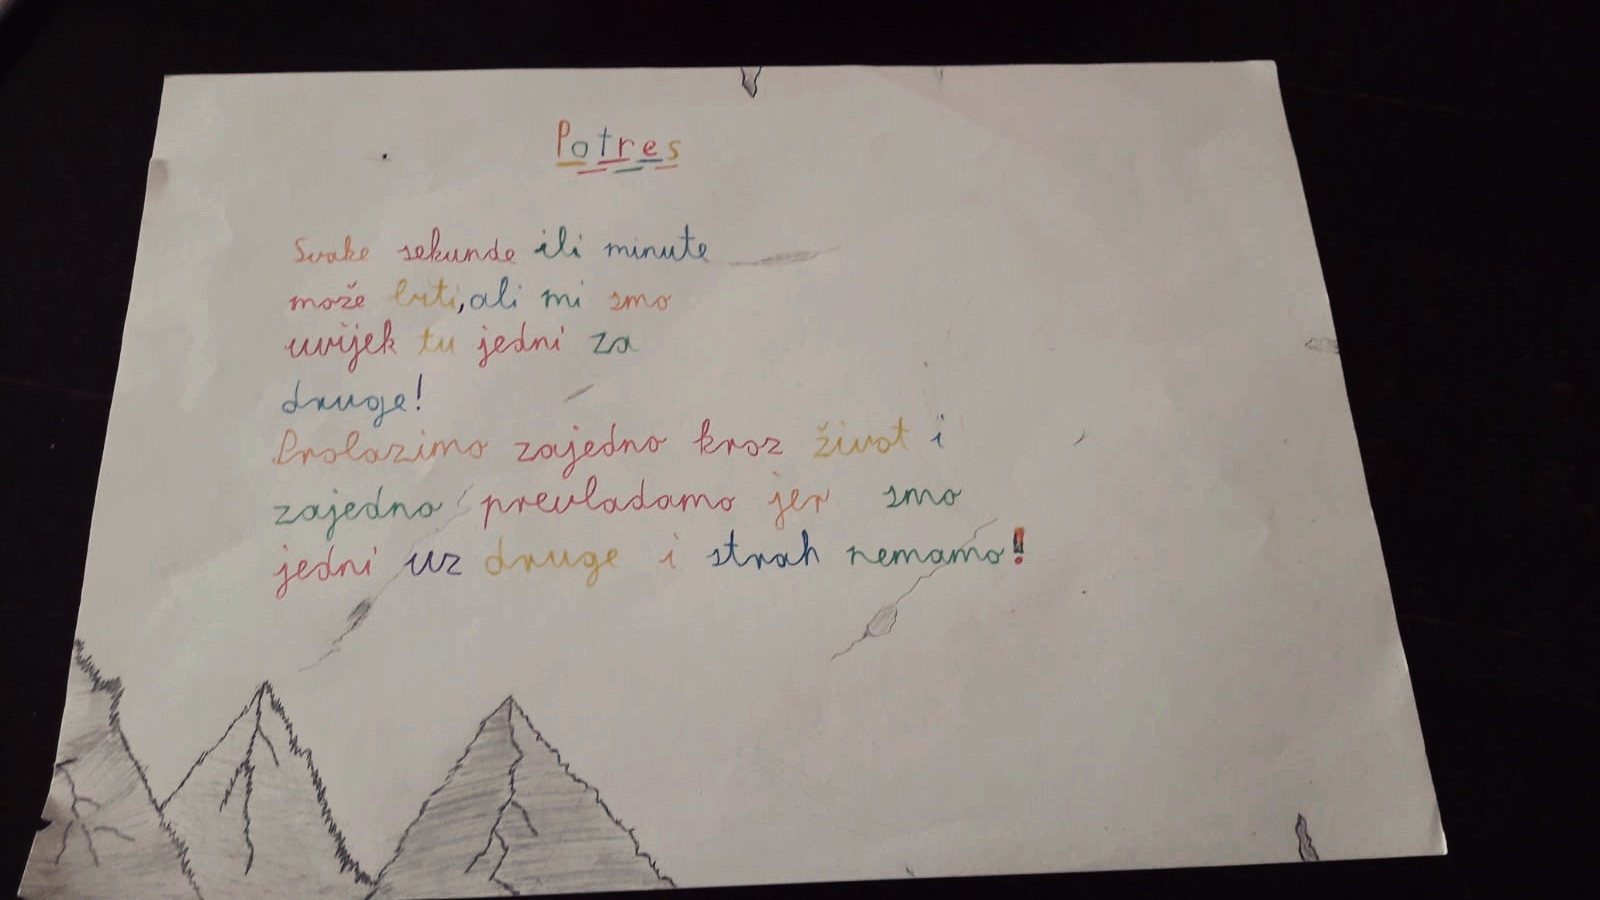 Potres
Svake sekunde ili minute
može biti, ali mi smo
uvijek tu jedni za
druge!
Prolazimo zajedno kroz život i
zajedno prevladamo jer smo
jedni uz druge i strah nemamo!